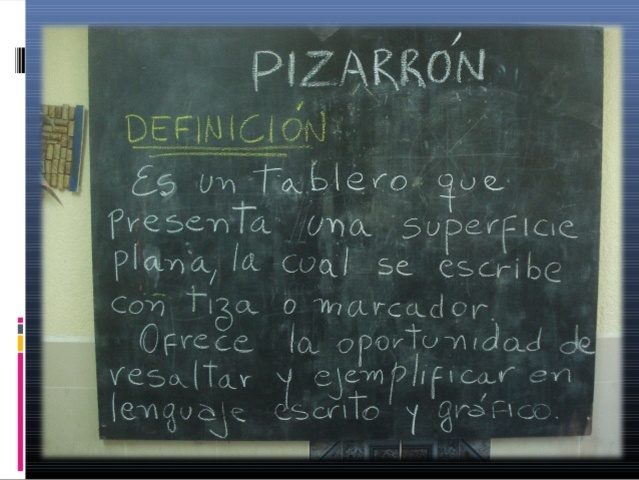 PIZARRÓN
DEFINICIÓN
Es un tablero que
presenta una superficie
plana, la cual se escribe
con tiza o marcador.
Ofrece la oportunidad de
resaltar y ejemplificar en
lenguaje escrito y gráfico.